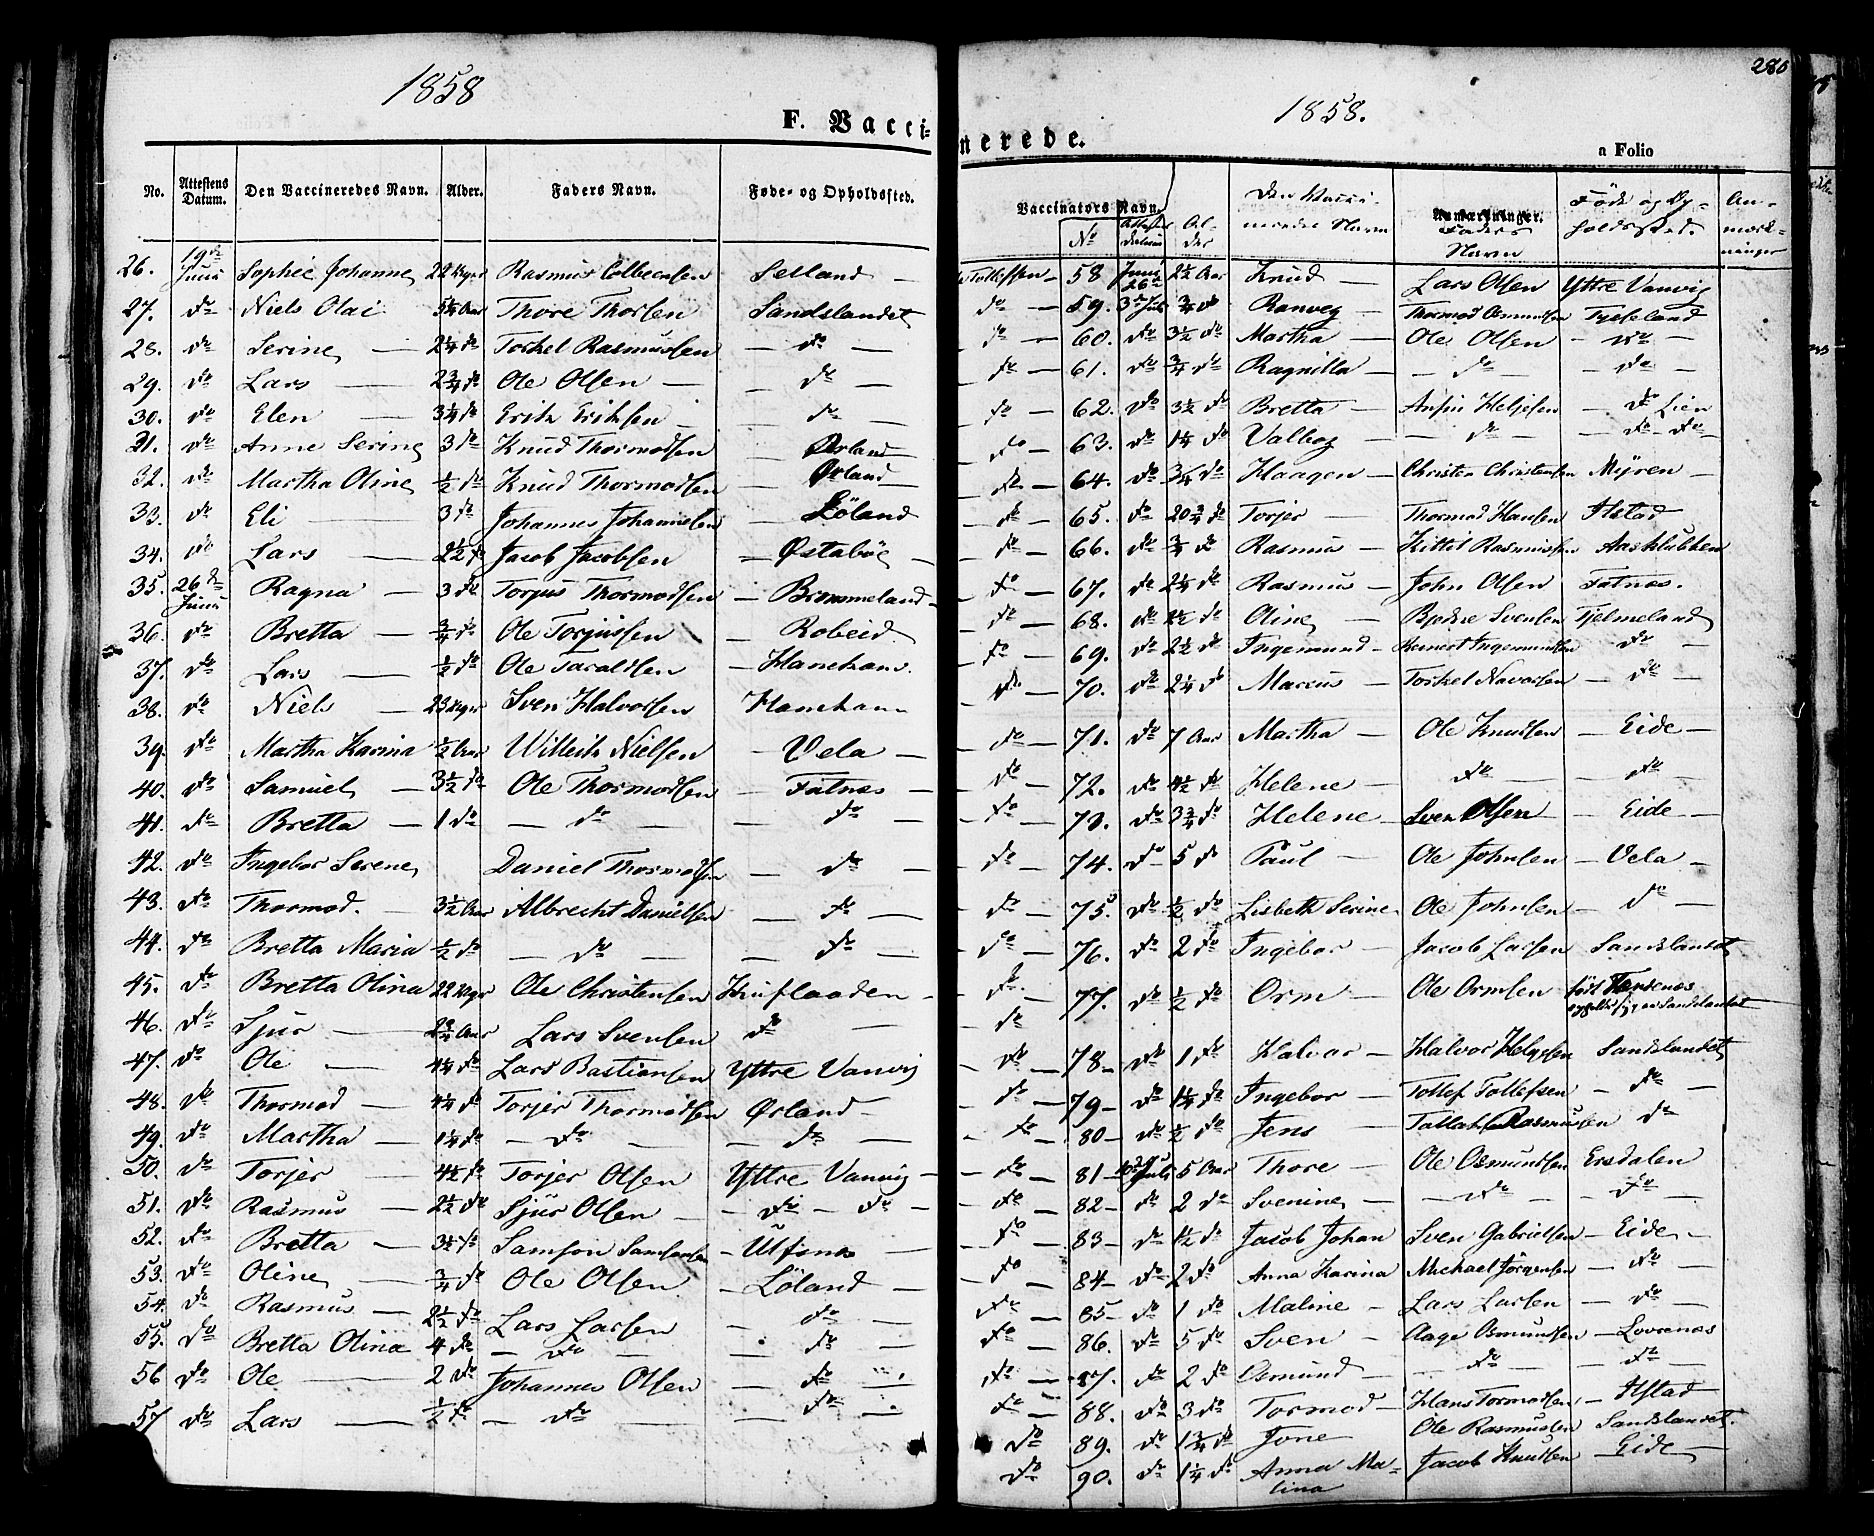 1858
F. Vacci-
No. Attestens Datum. Den Vaccineredes Navn. Alder. Faders Navn. Føde- og Opholdssted.
26. 19de Juni Sophie Johanne 22 Uger Rasmus Selland
27. do Niels Olai 5¼ Aar Thore Thorsen Sandslandet
28. do Serine — 2¼ do Torkel Rasmussen — do —
29. do Lars — 2¾ do Ole Olsen — — do —
30. do Elen — 3¼ do Erik Eriksen — do —
31. do Anne Serine 3 do Knud Thormodsen — Ørland
32. do Martha Oline ½ do Knud Thormodsen — Ørland
33. do Eli — 3 do Johannes Johannesen — Löland
34. do Lars — 2½ do Jacob Jacobsen — Østabøe —
35. 26de Juni Ragna — 3 do Torjus Thormodsen — Brommeland
36. do Bretta — ¾ do Ole Torjussen — Robeid
37. do Lars — ½ do Ole Taraldsen — Haneham.
38. do Niels — 23 Uger Sven Halvorsen Haneham
39. do Martha Karina ½ Aar Willeik Nielsen — Vela —
40. do Samuel — 3½ do Ole Thormodsen — Fatnes —
41. do Bretta — 1 do — do — — do —
42. do Ingebor Serene Daniel Thormodsen — do —
43. do Thormod. 3½ Aar Albrecht Danielsen — do —
44. do Bretta Maria ½ do — do — — do —
45. do Bretta Olina 22 Uger Ole Christensen Knuflaaden —
46. do Sjur — 2¾ Aar Lars Svensen do —
47. do Ole — 4¼ do Lars Bastiansen Yttre Vanvig
48. do Thormod — 4¼ do Torjer Thormodsen Ørland —
49. do Martha — 1¼ do — do — — do —
50. do Torjer — 4½ do Torjer Olsen Yttre Vanvig —
51. do Rasmus — 2½ do Sjur Olsen — — do — do —
52. do Bretta — 3½ do Samson Samsonsen — Ulfsnes —
53. do Oline — ¾ do Ole Olsen — Löland —
54. do Rasmus — 2½ do Lars Larsen — do —
55. do Bretta Olina 4 do — do — — do —
56 do Ole — 2 do Johannes Olsen — do —
57 do Lars — ½ do — do — — do —
280
1858.
nerede.
a Folio
Vaccinators Navn. No Attestens Datum Alder Den Vaccineredes Navn Anmærkninger. Faders Navn Föde og Opholdsted. Anmærkninger
Tollefsen — 58 Juni 26de 2½ Aar Knud — Lars Olsen Yttre Vanvig
do — 59. 3de Juli ¾ do Ranveg — Thormod Osmundsen Tysseland
do — 60. do 3½ do Martha — Ole Olsen — do —
do — 61. do ¾ do Ragnilla — — do — — do —
do — 62. do 3½ do Bretta — Anfin Heljesen — do Lien
do — 63. do 1¼ do Valbog — do — — do — do —
do — 64. do ¾ do Haagen — Christen Christensen Myren —
do — 65. do 20¾ do Torjer — Thormod Hansen Ilstad
do — 66. do ¾ do Rasmus — Kittel Rasmussen Aasklubben
do — 67. do 2¼ do Rasmus — John Olsen Fatnes.
do — 68. do 2½ do Oline — Svensen Hjelmeland
do — 69. do 2½ do Ingemund — Ingemundsen do —
do — 70. do 2¼ do Marcus — Torkel Navarsen — do —
do — 71. do 7 Aar Martha — Ole Knudsen — Eide —
do — 72. do 4½ do Helene — do — — do —
do — 73. do 3¾ do Helene — Sven Olsen — Eide —
do — 74. do 5 do Paul — Ole Johnsen — Vela —
do — 75. do ½ do Lisbeth Serine Ole Johnsen — do —
do — 76. do 2 do Ingebor — Jacob Larsen Sandslandet
do — 77. do ½ do Orm — Ole Ormsen födt
do
do — 78 — do 1 do Halvor — Halvor Helgesen Sandslandet
do — 79 — do 1¼ do Ingebor — Tollef Tollefsen — do —
do — 80 — do ½ do Jens — Rasmussen do
do — 81 — Juli 5 Aar Thore — Ole Osmundsen Ersdalen
do — 82 — do 2 do Svenine — — do — — do —
do — 83 — do 1½ do Jacob Johan Sven Gabrielsen — Eide —
do — 84 — do 2 do Anna Karina Michael Jörgensen — do —
do — 85 — do 1 do Maline — Lars Larsen — do —
do — 86. do 5 do Sven — Aage Osmundsen — Lovrenes
do — 87. do 2 do Osmund — do — — do —
do — 88. do 3 do Tormod — Hans Tormodsen — Ilstad
do 89. do 1¾ do Jone Ole Rasmussen Sandslandet.
do 90. do 1¼ do Anna Ma- Jacob Knudsen — Eide —
lina